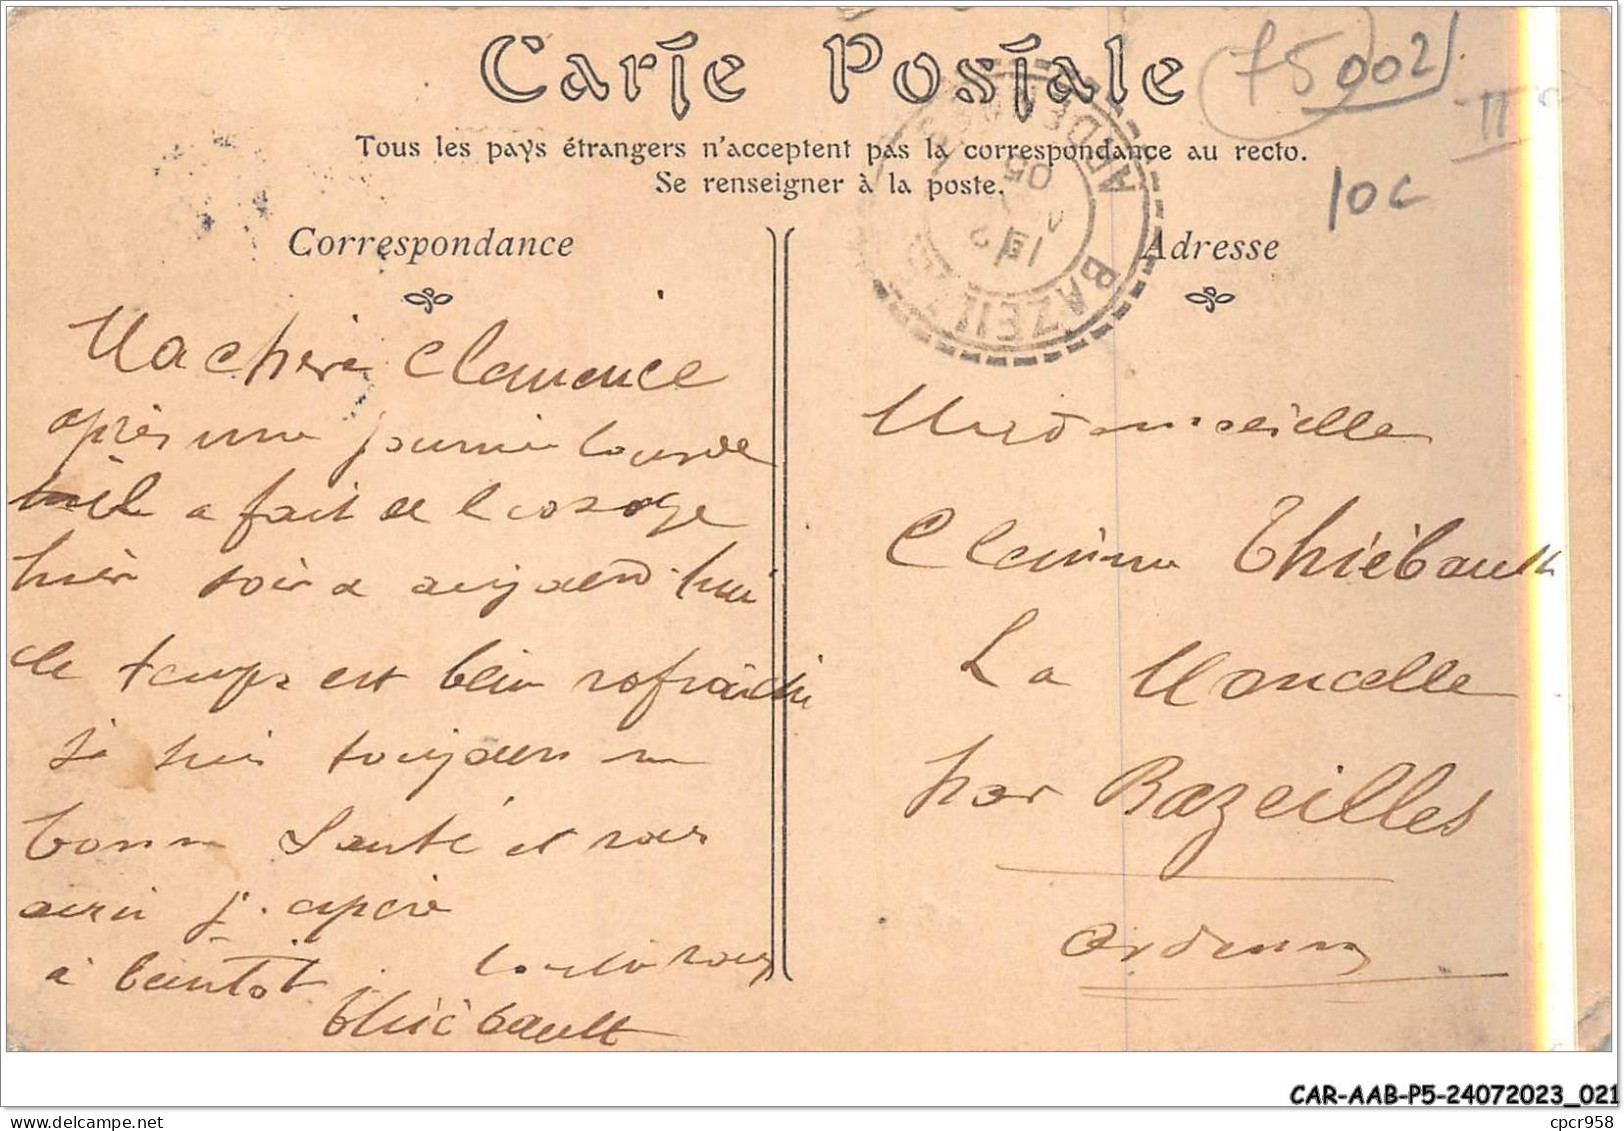 Carte Postale
Tous les pays étrangers n'acceptent pas la correspondance au recto.
Se renseigner à la poste.
75002
II
10c
ARDENNES
05
BAZEILLES
Correspondance
Ma chère Clemence
après une journée lourde
il a fait de l'orage
hier soir & aujourd'hui
le temps est bien rafraichi
je suis toujours en
bonne Santé et vous
aussi j'espère
à bientôt. tout à vous
Thiébault
Adresse
Mademoiselle
Thiébault
La Moncelle
par Bazeilles
Ardennes
CAR-AAB-P5-24072023_021
cpcr958